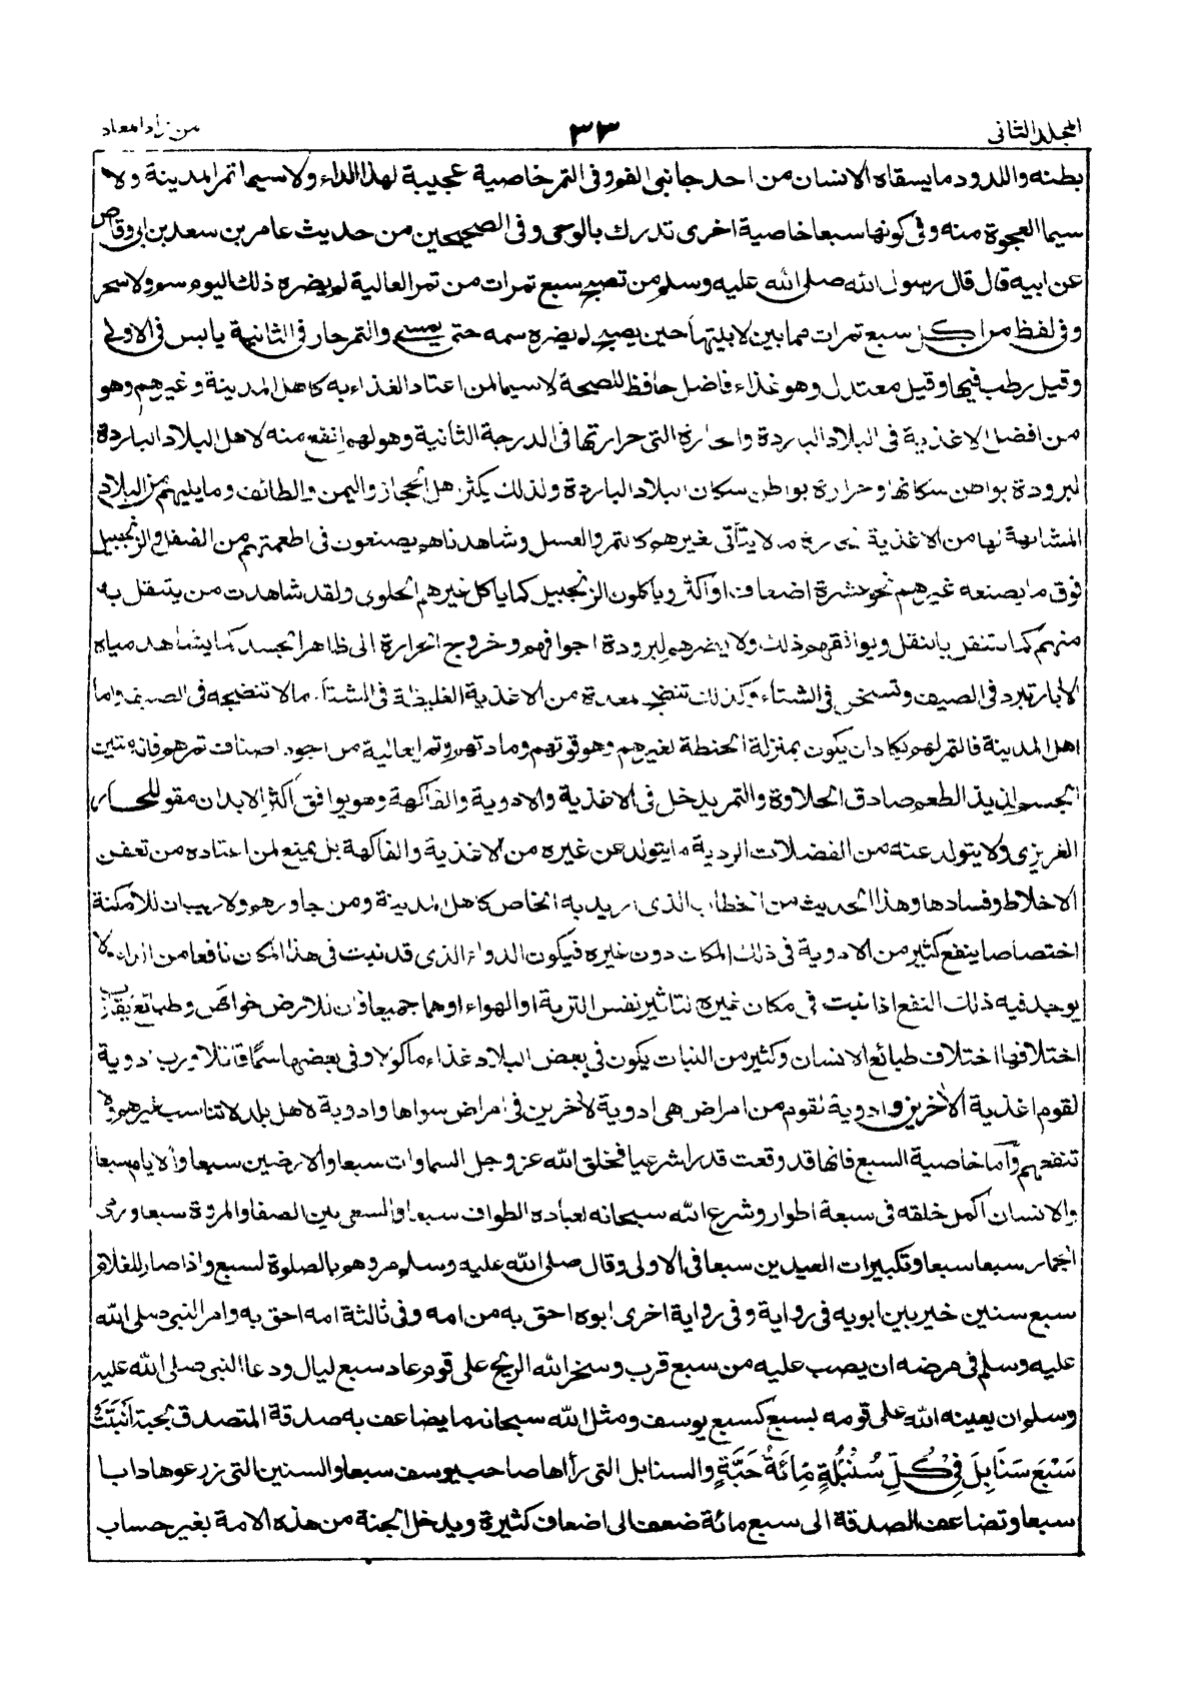 المجلد الثانى
٣٣
من زاد المعاد
بطنه واللدود ما يسقاه الانسان من احد جانبى الفم وفى التمر خاصية عجيبة لهذا الداء ولاسيما تمر المدينة ولا
سيما العجوة منه وفى كونها سبعا خاصية اخرى تدرك بالوحى وفى الصحيحين من حديث عامر بن سعد بن ابى وقاص
عن ابيه قال قال رسول الله صلى الله عليه وسلم من تصبح بسبع تمرات من تمر العالية لم يضره ذلك اليوم سم ولا سحر
وفى لفظ من اكل سبع تمرات مما بين لابتيها حين يصبح لم يضره سم حتى يمسى والتمر حار فى الثانية يابس فى الاولى
وقيل رطب فيها وقيل معتدل وهو غذاء فاضل حافظ للصحة لاسيما لمن اعتاد الغذاء به كاهل المدينة وغيرهم وهو
من افضل الاغذية فى البلاد الباردة والحارة التى حرارتها فى الدرجة الثانية وهو لهم انفع منه لاهل البلاد الباردة
لبرودة بواطن سكانها وحرارة بواطن سكان البلاد الباردة ولذلك يكثر اهل الحجاز واليمن والطائف وما يليهم من البلاد
المشابهة لها من الاغذية الحارة ما لا يتأتى بغيرهم كالتمر والعسل وشاهدناهم يصنعون فى اطعمتهم من الفلفل والزنجبيل
فوق ما يصنعه غيرهم نحو عشرة اضعاف او اكثر وياكلون الزنجبيل كما ياكل غيرهم الحلوى ولقد شاهدت من يتنقل به
منهم كما يتنقل بالنقل ويوافقهم ذلك ولا يضرهم لبرودة اجوافهم وخروج الحرارة الى ظاهر الجسد كما يشاهد مياه
الابار تبرد فى الصيف وتسخن فى الشتاء وكذلك تنضج المعدة من الاغذية الغليظة فى الشتاء ما لا تنضجه فى الصيف واما
اهل المدينة فالتمر لهم يكاد ان يكون بمنزلة الحنطة لغيرهم وهو قوتهم ومادتهم وتمر العالية من اجود اصناف تمرهم فانه متين
الجسم لذيذ الطعم صادق الحلاوة والتمر يدخل فى الاغذية والادوية والفاكهة وهو يوافق اكثر الابدان مقو للحار
الغريزى ولا يتولد عنه من الفضلات الردية ما يتولد عن غيره من الاغذية والفاكهة بل يمنع لمن اعتاده من تعفن
الاخلاط وفسادها وهذا الحديث من الخطاب الذى اريد به الخاص كاهل المدينة ومن جاورهم ولا ريب ان للامكنة
اختصاصا ينفع كثير من الادوية فى ذلك المكان دون غيره فيكون الدواء الذى قد نبت فى هذا المكان نافعا من الداء لا
يوجد فيه ذلك النفع اذا نبت فى مكان غيره لتاثير نفس التربة او الهواء او هما جميعا فان للارض خواص وطبائع يقارب
اختلافها اختلاف طبائع الانسان وكثير من النبات يكون فى بعض البلاد غذاء ماكولا وفى بعضها سمًا قاتلا ورب ادوية
لقوم اغذية لاخرين وادوية لقوم من امراض هى ادوية لاخرين فى امراض سواها وادوية لاهل بلد لا تناسب غيرهم ولا
تنفعهم وأما خاصية السبع فانها قد وقعت قدرا وشرعيا فخلق الله عز وجل السماوات سبعا والارضين سبعا والايام سبعا
والانسان اكمل خلقه فى سبعة اطوار وشرع الله سبحانه لعباده الطواف سبعا والسعى بين الصفا والمروة سبعا ورمى
الجمار سبعا سبعا وتكبيرات العيدين سبعا فى الاولى وقال صلى الله عليه وسلم مروهم بالصلوة لسبع واذا صار للغلام
سبع سنين خير بين ابويه فى رواية وفى رواية اخرى ابوه احق به من امه وفى ثالثة امه احق به وامر النبى صلى الله
عليه وسلم فى مرضه ان يصب عليه من سبع قرب وسخر الله الريح على قوم عاد سبع ليال ودعا النبى صلى الله عليه
وسلم ان يعينه الله على قومه بسبع كسبع يوسف ومثل الله سبحانه ما يضاعف به صدقة المتصدق بحبة أَنْبَتَتْ
سَبْعَ سَنَابِلَ فِى كُلِّ سُنْبُلَةٍ مِّائَةُ حَبَّةٍ والسنابل التى رأاها صاحب يوسف سبعا والسنين التى زرعوها دابا
سبعا وتضاعف الصدقة الى سبع مائة ضعف الى اضعاف كثيرة ويدخل الجنة من هذه الامة بغير حساب